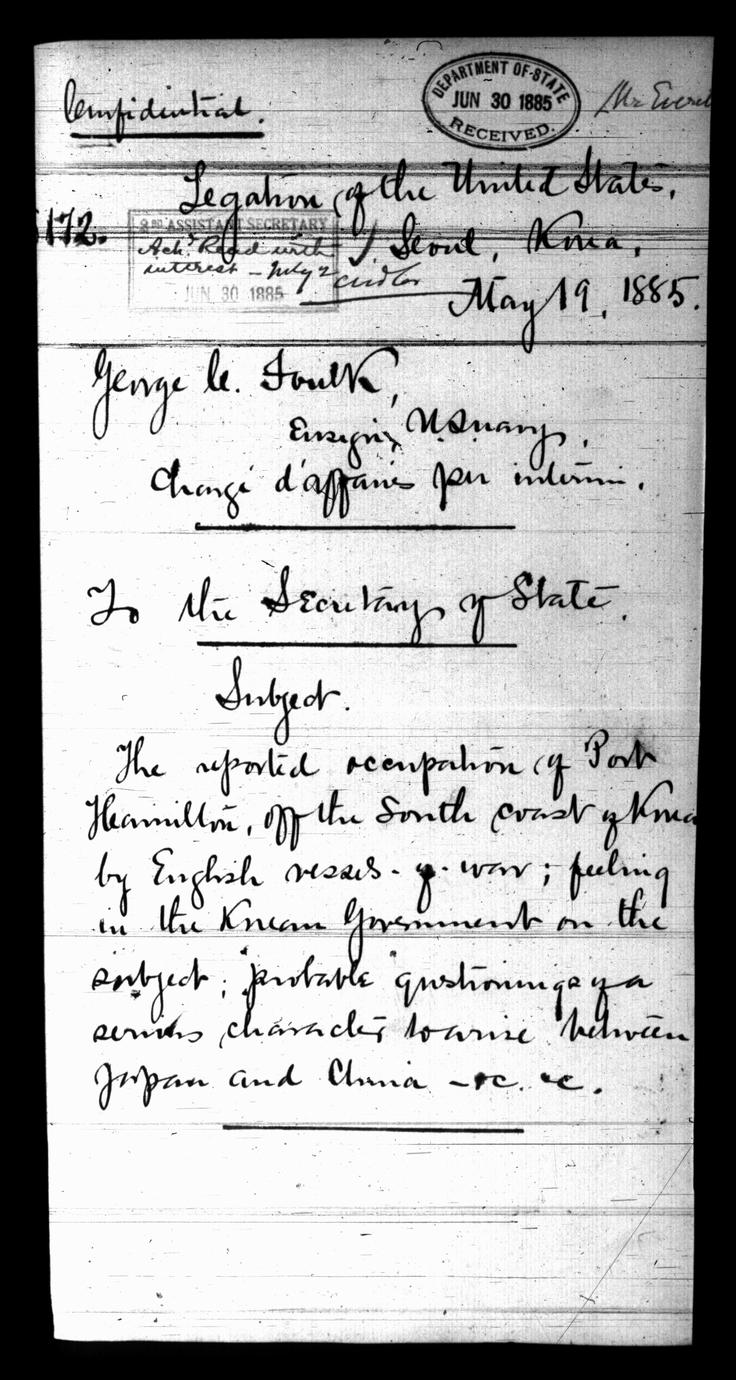 Confidential.
DEPARTMENT OF STATE
JUN 30 1885
RECEIVED.
Mr Everett
Legation of the United States,
172.
Seoul, Korea,
May 19, 1885.
2ND ASSISTANT SECRETARY
Ack. Read with
interest - July 2
JUN 30 1885
George C. Foulk,
Ensign, U.S. navy,
Chargé d'affaires per interim.
To the Secretary of State.
Subject.
The reported occupation of Port
Hamilton, off the South coast of Korea
by English vessels-of-war; feeling
in the Korean Government on the
subject; "probable" questionings of a
serious character to arise between
Japan and China - &c. &c.